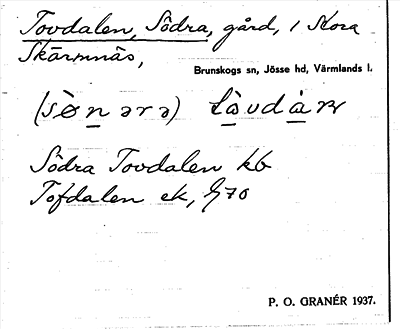 Tovdalen, Södra, gård, i Stora
Skärmnäs,
Brunskogs sn, Jösse hd, Värmlands l.
Södra Tovdalen kb
Tofdalen ek, 70
P. O. GRANÉR 1937.